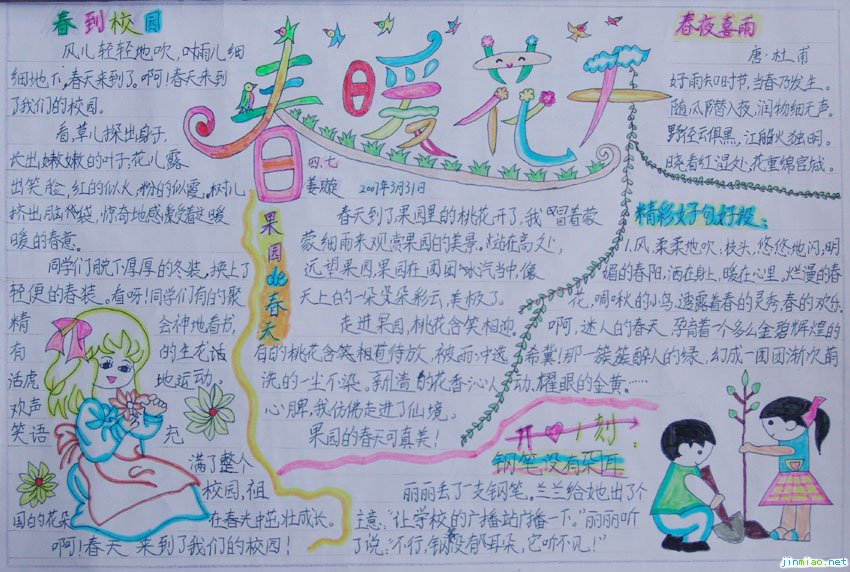 春到校园
风儿轻轻地吹，雨儿细
细地下，春天来到了。啊！春天来到
了我们的校园。
看，草儿探出身子，
长出嫩嫩的叶子；花儿露
出笑脸，红的似火，粉的似霞。树儿
挤出脑袋，惊奇地感受着这暖
暖的春意。
同学们脱下厚厚的冬装，换上了
轻便的春装。看呀！同学们有的聚
精会神地看书，
有的生龙活
活虎地运动。
欢声
笑语充
满了整个
校园，祖
国的花朵在春光中茁壮成长。
啊！春天来到了我们的校园！
春暖花开
四、七
姜璇
2007年3月31日
果园de春天
春天到了果园里的桃花开了，我冒着蒙
蒙细雨来观赏果园的美景。站在高处，
远望果园，果园在团团水汽当中，像
天上的一朵朵彩云，美极了。
走进果园，桃花含笑相迎。
有的桃花含笑相迎待放，被雨冲洗
洗的一尘不染。新造的花香沁人
心脾，我仿佛走进了仙境。
果园的春天可真美！
春夜喜雨
唐·杜甫
好雨知时节，当春乃发生。
随风潜入夜，润物细无声。
野径云俱黑，江船火独明。
晓看红湿处，花重锦官城。
精彩好句好段：
1.风，柔柔地吹；枝头，悠悠地闪；明
媚的春阳，洒在身上，暖在心里。烂漫的春
花，啁啾的小鸟，透露着春的灵秀，春的欢乐。
啊，迷人的春天，孕育着一个多么金碧辉煌的
希冀！那一簇簇醉人的绿，幻成一团团渐次萌
动、耀眼的金黄。……
开心一刻：
钢笔没有朵耳
丽丽丢了一支钢笔。兰兰给她出了个
主意：“让学校的广播站广播一下。”丽丽听
了说：“不行，钢笔没有耳朵，它听不见！”
jinmiao.net